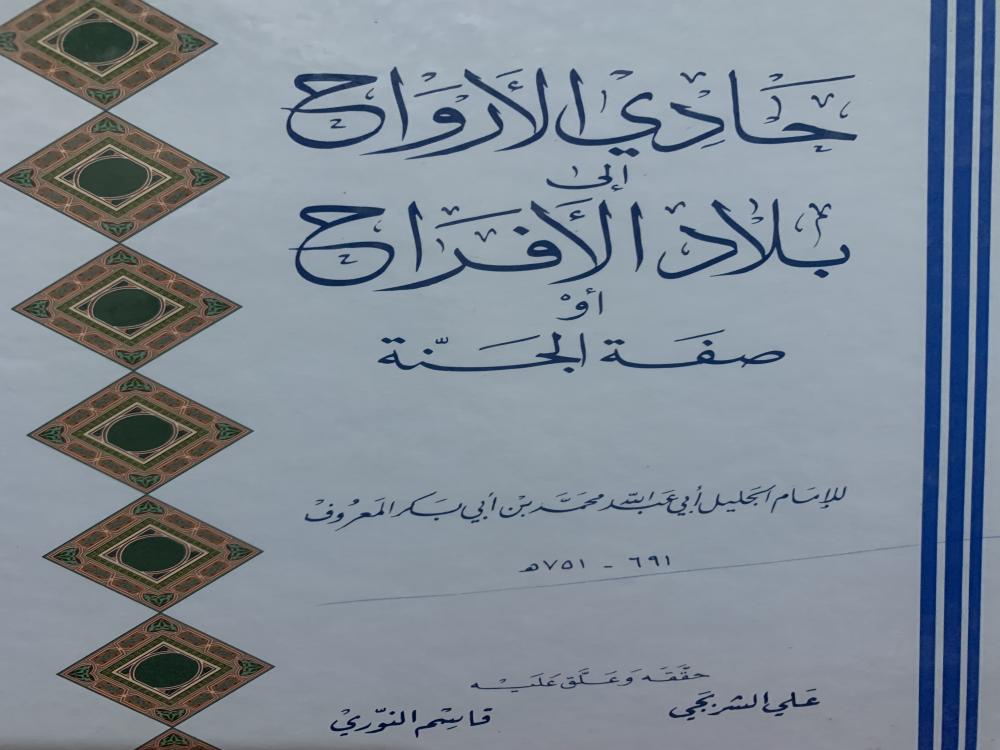 حَادِي الأَرْوَاح
إلى
بِلَادِ الأَفْرَاح
أوْ
صِفَة الجَنّة
للإمَام الجَليل أبي عَبد اللّه محمَّد بْن أبي بَكر المَعرُوفْ
٦٩١ - ٧٥١ هـ
حَقَّقَه وَعَلَّق عَلَيْه
عَلي الشربَجي قَاسِم النّوري